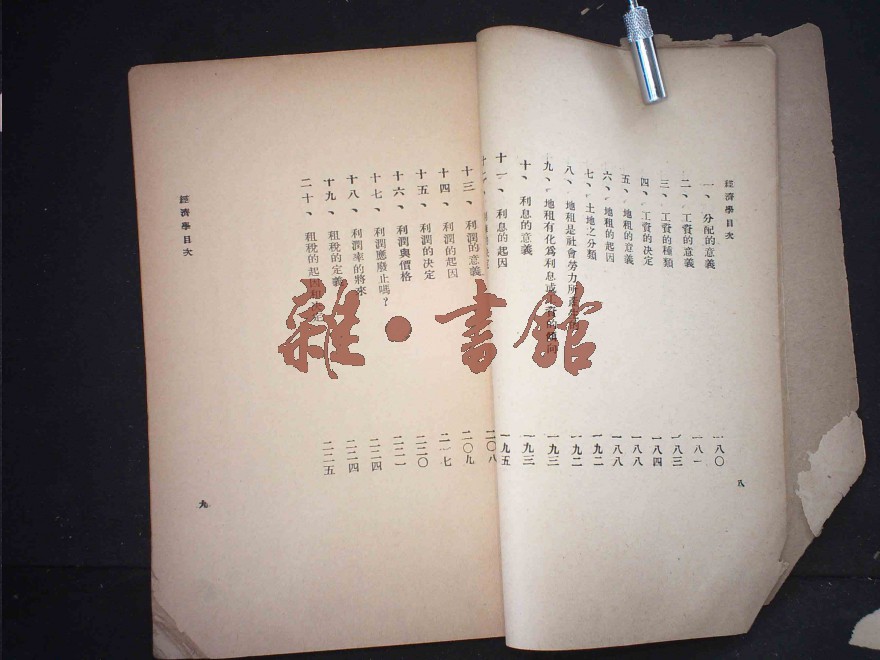 經濟學目次
一、分配的意義 一八〇
二、工資的意義 一八一
三、工資的種類 一八三
四、工資的決定 一八四
五、地租的意義 一八八
六、地租的起因 一八八
七、土地之分類 一九二
八、地租是社會勞力所 一九二
九、地租有化爲利息或工資的傾向 一九三
十、利息的意義 一九三
十一、利息的起因 一九五
十二、 二〇八
八
十三、利潤的意義 二〇九
十四、利潤的起因 二一七
十五、利潤的決定 二二〇
十六、利潤與價格 二二一
十七、利潤應廢止嗎？ 二二四
十八、利潤率的將來 二二四
十九、租稅的定義 二二五
二十、租稅的起因和
經濟學目次
九
雜·書館